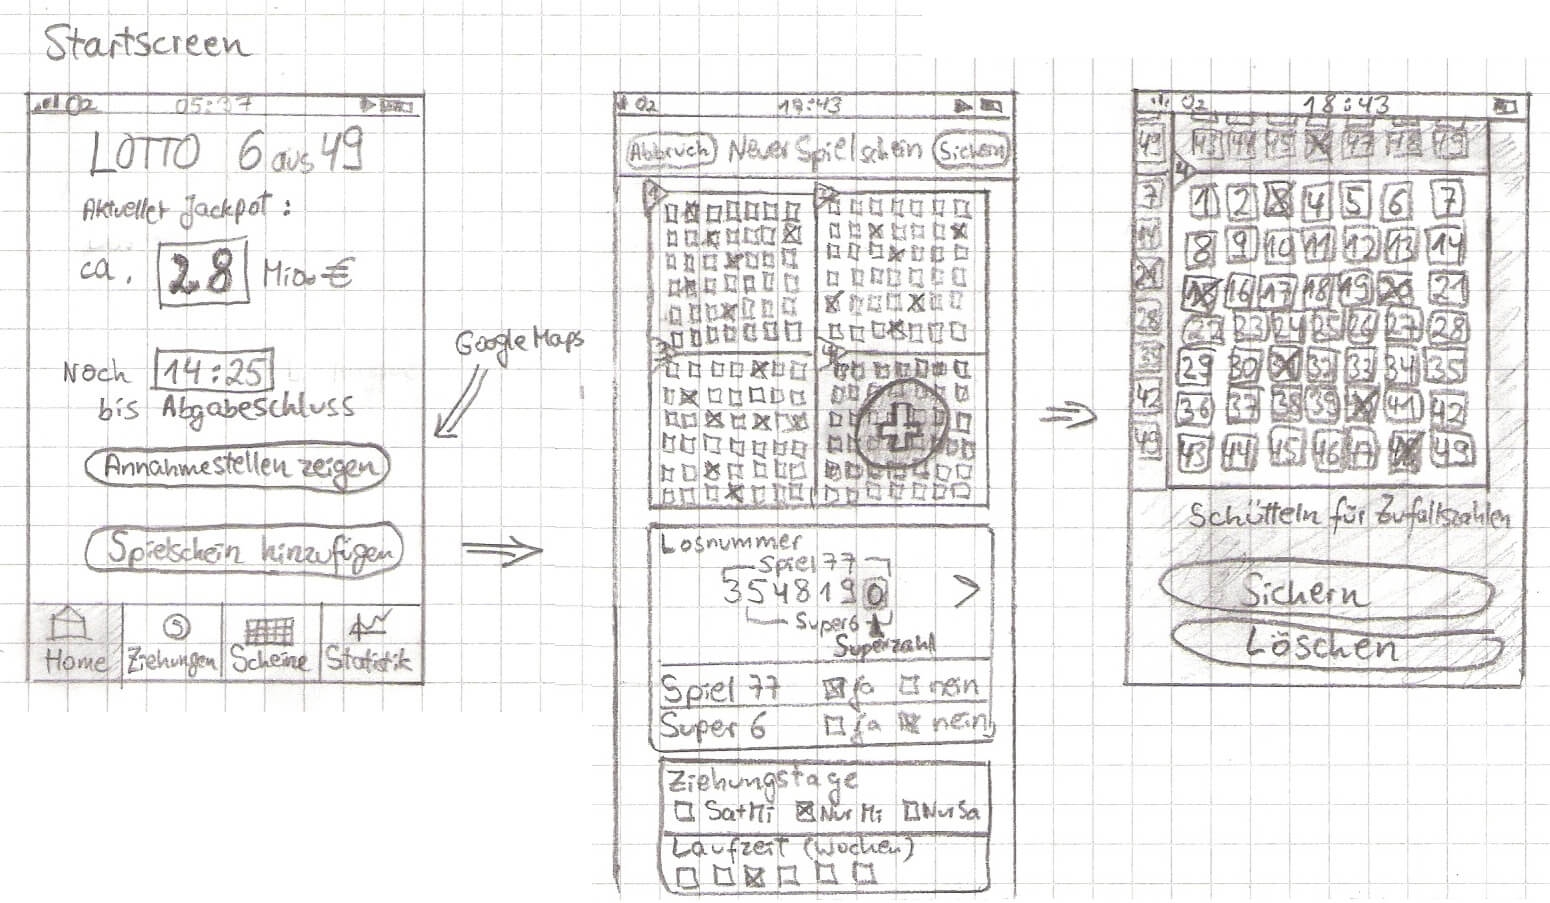 Startscreen
O2 05:37
LOTTO 6 aus 49
Aktueller Jackpot:
ca. 28 Mio. €
Noch 14:25
bis Abgabeschluss
Annahmestellen zeigen
Spielschein hinzufügen
Home Ziehungen Scheine Statistik
Google Maps
O2 18:43
Abbruch Neuer Spielschein Sichern
1 2
3 4
Losnummer
Spiel 77
3548190
Super 6
Superzahl
Spiel 77 ja nein
Super 6 ja nein
Ziehungstage
Sa+Mi Nur Mi Nur Sa
Laufzeit (Wochen)
O2 18:43
49 43 44 45 46 47 48 49
4
7 1 2 3 4 5 6 7
14 8 9 10 11 12 13 14
21 15 16 17 18 19 20 21
28 22 23 24 25 26 27 28
35 29 30 31 32 33 34 35
42 36 37 38 39 40 41 42
49 43 44 45 46 47 48 49
Schütteln für Zufallszahlen
Sichern
Löschen